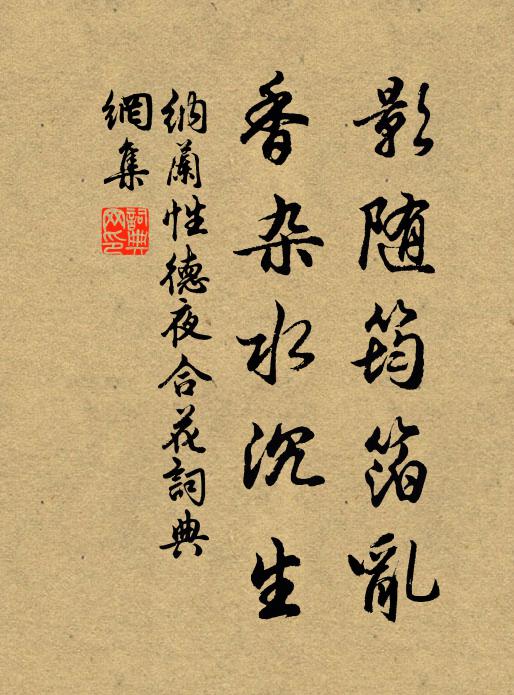 影随筠箔亂
香杂水沉生
纳蘭性德夜合花詞典
網集
詞典
网印